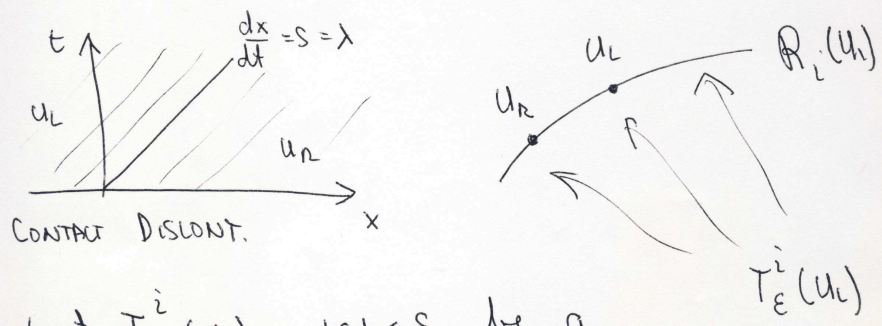 t
dx/dt = S = λ
u_L
u_R
x
CONTACT DISCONT.
u_L
u_R
R_i(u_L)
T_ε^i(u_L)